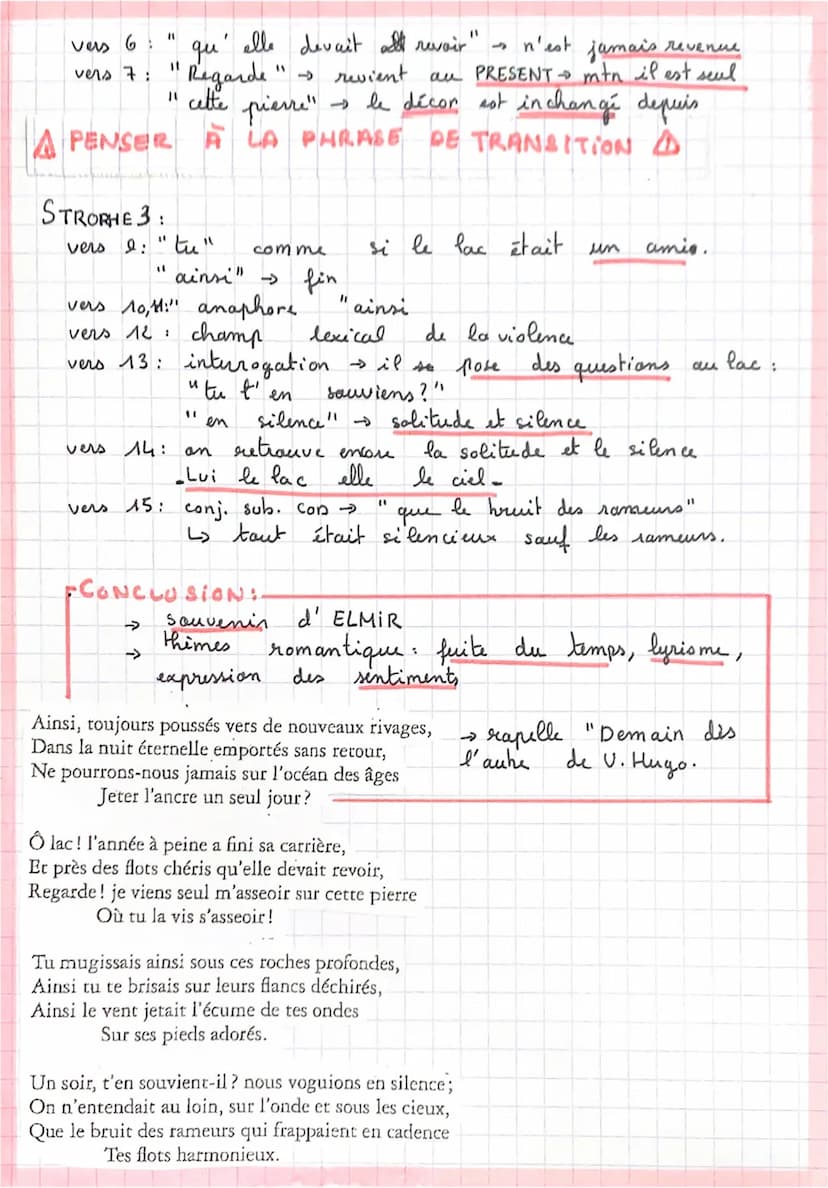 vers 6 : " qu' elle devait revoir" → n'est jamais revenue
vers 7 : "Regarde" → revient au PRESENT → mtn il est seul
" cette pierre" → le décor est inchangé depuis
⚠ PENSER À LA PHRASE DE TRANSITION ⚠
STROPHE 3 :
vers 9: "tu" comme si le lac était un amie.
"ainsi" → fin
vers 10,11:" anaphore "ainsi
vers 12 : champ lexical de la violence
vers 13 : interrogation → il se pose des questions au lac :
"tu t'en souviens?"
"en silence" → solitude et silence
vers 14: on retrouve encore la solitude et le silence
Lui le lac elle le ciel
vers 15: conj. sub. COD → " que le bruit des rameurs"
↳ tout était silencieux sauf les rameurs.
CONCLUSION :
→ souvenir d' ELMIR
→ thèmes romantique : fuite du temps, lyrisme,
expression des sentiments
Ainsi, toujours poussés vers de nouveaux rivages,
Dans la nuit éternelle emportés sans retour,
Ne pourrons-nous jamais sur l'océan des âges
Jeter l'ancre un seul jour?
→ rapelle "Demain dès
l'aube de V. Hugo.
Ô lac ! l'année à peine a fini sa carrière,
Et près des flots chéris qu'elle devait revoir,
Regarde ! je viens seul m'asseoir sur cette pierre
Où tu la vis s'asseoir !
Tu mugissais ainsi sous ces roches profondes,
Ainsi tu te brisais sur leurs flancs déchirés,
Ainsi le vent jetait l'écume de tes ondes
Sur ses pieds adorés.
Un soir, t'en souvient-il ? nous voguions en silence ;
On n'entendait au loin, sur l'onde et sous les cieux,
Que le bruit des rameurs qui frappaient en cadence
Tes flots harmonieux.